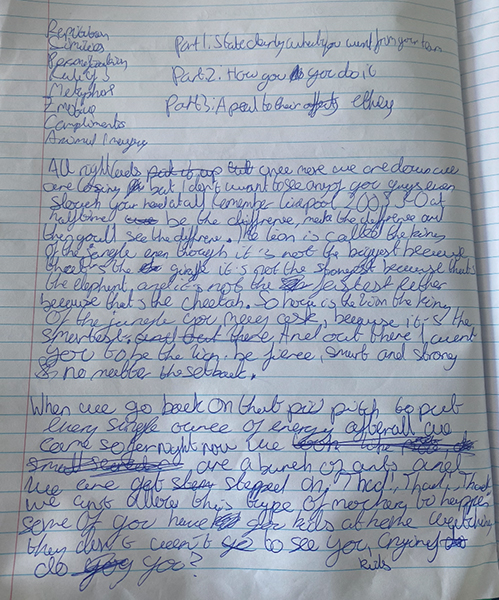 Repitation
Similies
Personification
Rule of 3
Metaphors
Emotive
Compliments
Animal Imagery
Part 1. State clearly what you want from your team
Part 2. How you do it
Part 3. Apeal to their
All right lads put it up but once more we are down we
are losing but I don't want to see any of you guys even
slouch your head at all remember Liverpool 2005 3-0 at
halftime be the diffirence, make the difference and
then you'll see the diffrence. The lion is called the king
of the jungle even though it's not the biggest because
that's the giraffe it's not the strongest because that's
the elephant, and it's not the fastest either
because that's the cheetah. So how is the lion the king
of the jungle you may ask, because it's the
smartest, and out there And out there I want
you to be the lion. be fierce, smart and strong
no matter the setback.
When we go back on that pit pitch to put
every single ounce of energy afterall we
came so far right now we
are a bunch of ants and
we are get stepped on, Thud, Thud, Thud
we cant allow this type of to happen
some of you have kids at home watching
they don't want to see you crying
do you? kids